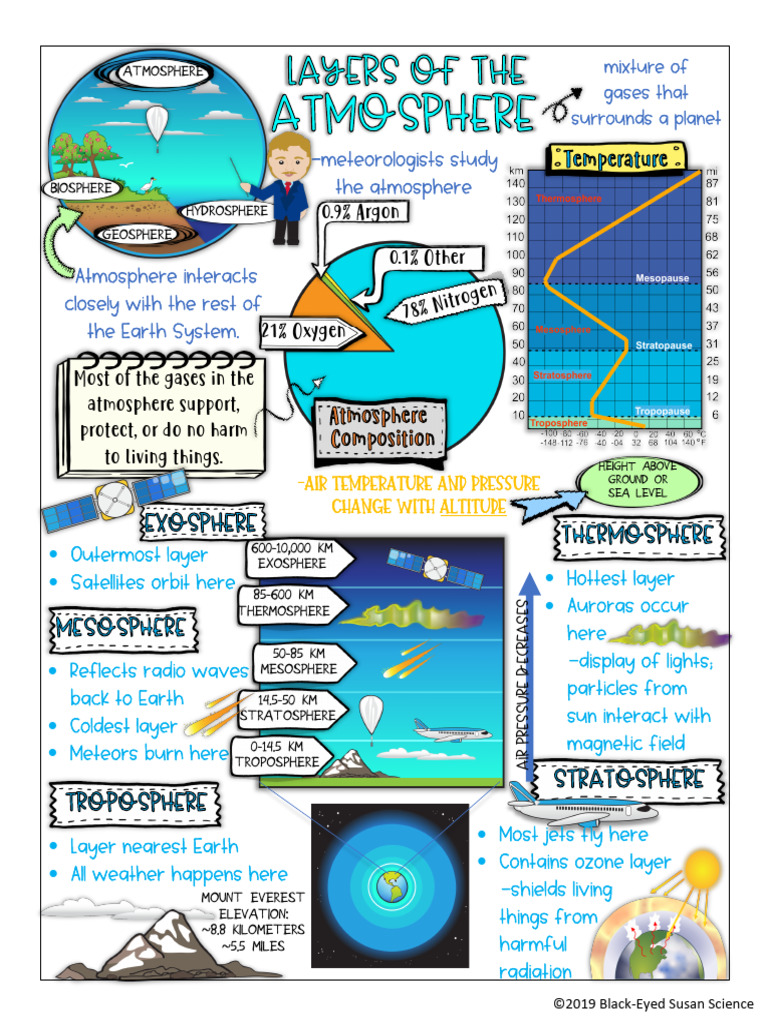 LAYERS OF THE
ATMOSPHERE
mixture of
gases that
surrounds a planet
ATMOSPHERE
BIOSPHERE
HYDROSPHERE
GEOSPHERE
-meteorologists study
the atmosphere
Atmosphere interacts
closely with the rest of
the Earth System.
0.9% Argon
0.1% Other
78% Nitrogen
21% Oxygen
Atmosphere
Composition
Most of the gases in the
atmosphere support,
protect, or do no harm
to living things.
Temperature
km mi
140 87
130 81
120 75
110 68
100 62
90 56
80 50
70 43
60 37
50 31
40 25
30 19
20 12
10 6
Thermosphere
Mesopause
Mesosphere
Stratopause
Stratosphere
Tropopause
Troposphere
-100 -80 -60 -40 -20 0 20 40 60 °C
-148 -112 -76 -40 -04 32 68 104 140 °F
-AIR TEMPERATURE AND PRESSURE
CHANGE WITH ALTITUDE
HEIGHT ABOVE
GROUND OR
SEA LEVEL
EXOSPHERE
• Outermost layer
• Satellites orbit here
MESOSPHERE
• Reflects radio waves
back to Earth
• Coldest layer
• Meteors burn here
TROPOSPHERE
• Layer nearest Earth
• All weather happens here
MOUNT EVEREST
ELEVATION:
~8.8 KILOMETERS
~5.5 MILES
600-10,000 KM
EXOSPHERE
85-600 KM
THERMOSPHERE
50-85 KM
MESOSPHERE
14.5-50 KM
STRATOSPHERE
0-14.5 KM
TROPOSPHERE
AIR PRESSURE DECREASES
THERMOSPHERE
• Hottest layer
• Auroras occur
here
-display of lights;
particles from
sun interact with
magnetic field
STRATOSPHERE
• Most jets fly here
• Contains ozone layer
-shields living
things from
harmful
radiation
©2019 Black-Eyed Susan Science